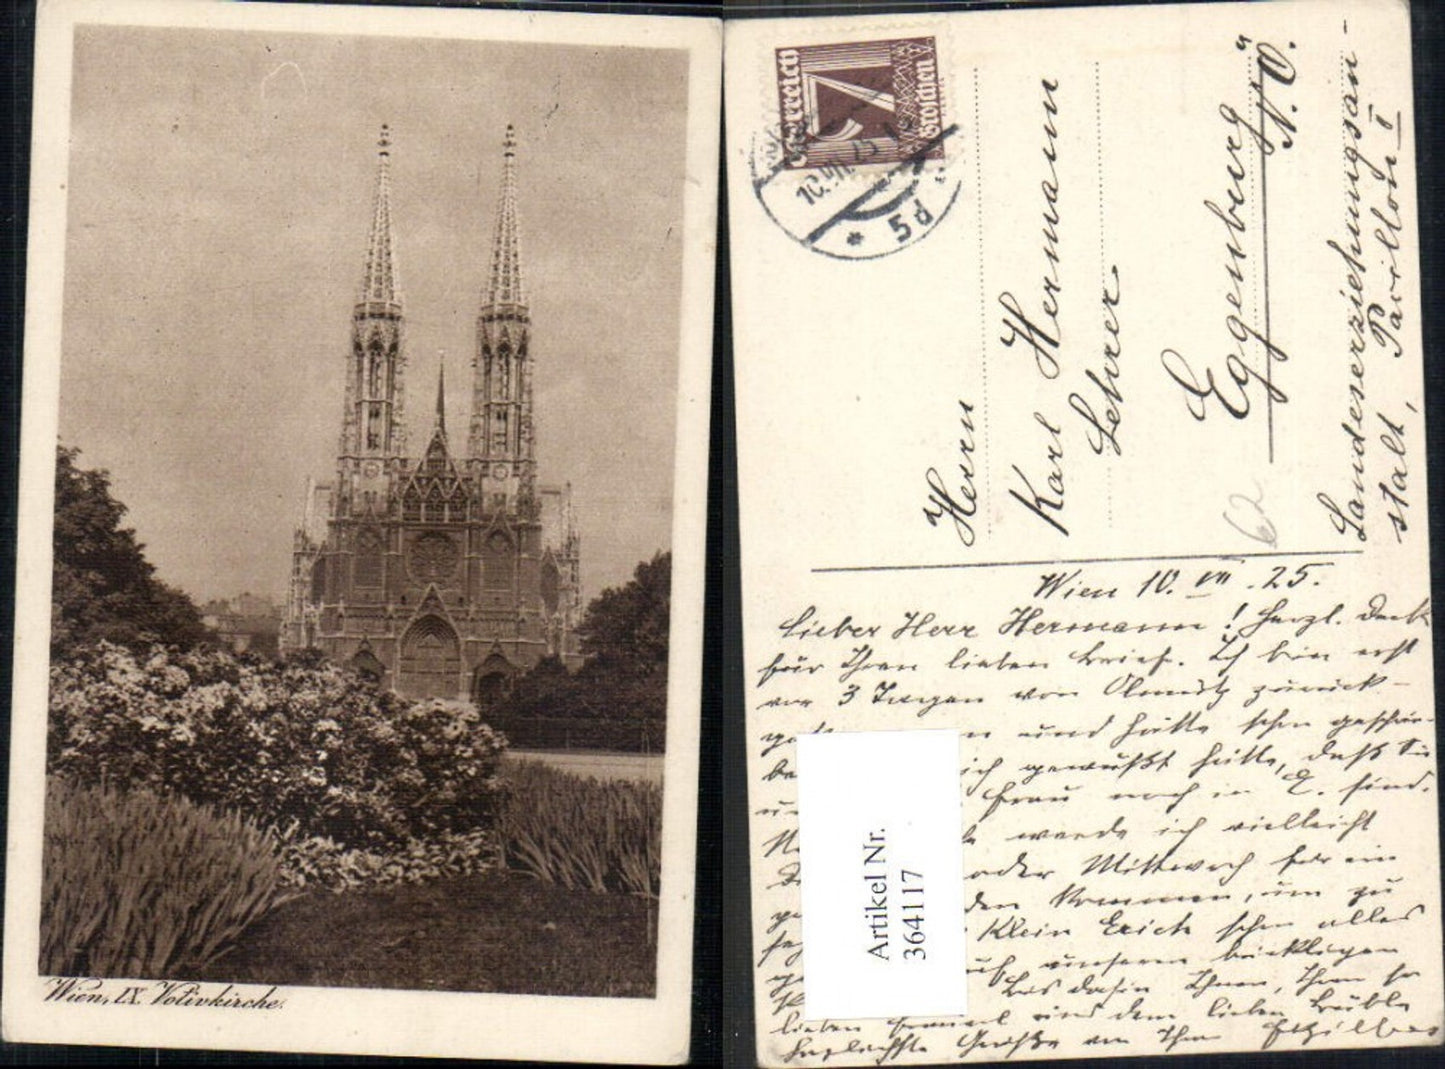 Wien, IX. Votivkirche.
Österreich
7
Groschen
10.VII.25
* 5d
Herrn
Karl Hermann
Lehrer
Eggenburg
N.Ö.
Landeserziehungsan-
stalt, Pavillon I
62
Wien 10. VII. 25.
Lieber Herr Hermann! Herzl. Dank
für Ihren lieben Brief. Ich bin erst
vor 3 Tagen von Olmütz zurück-
und hätte schon geschrie-
ich gewußt hätte, daß Sie
Frau noch in E. sind.
werde ich vielleicht
oder Mittwoch für ein
kommen, um zu
Klein Erich schon alles
unseren
Bis dahin Ihnen, Ihrer
lieben und dem lieben Bübl
herzlichste Grüße von Ihrem
Artikel Nr.
364117